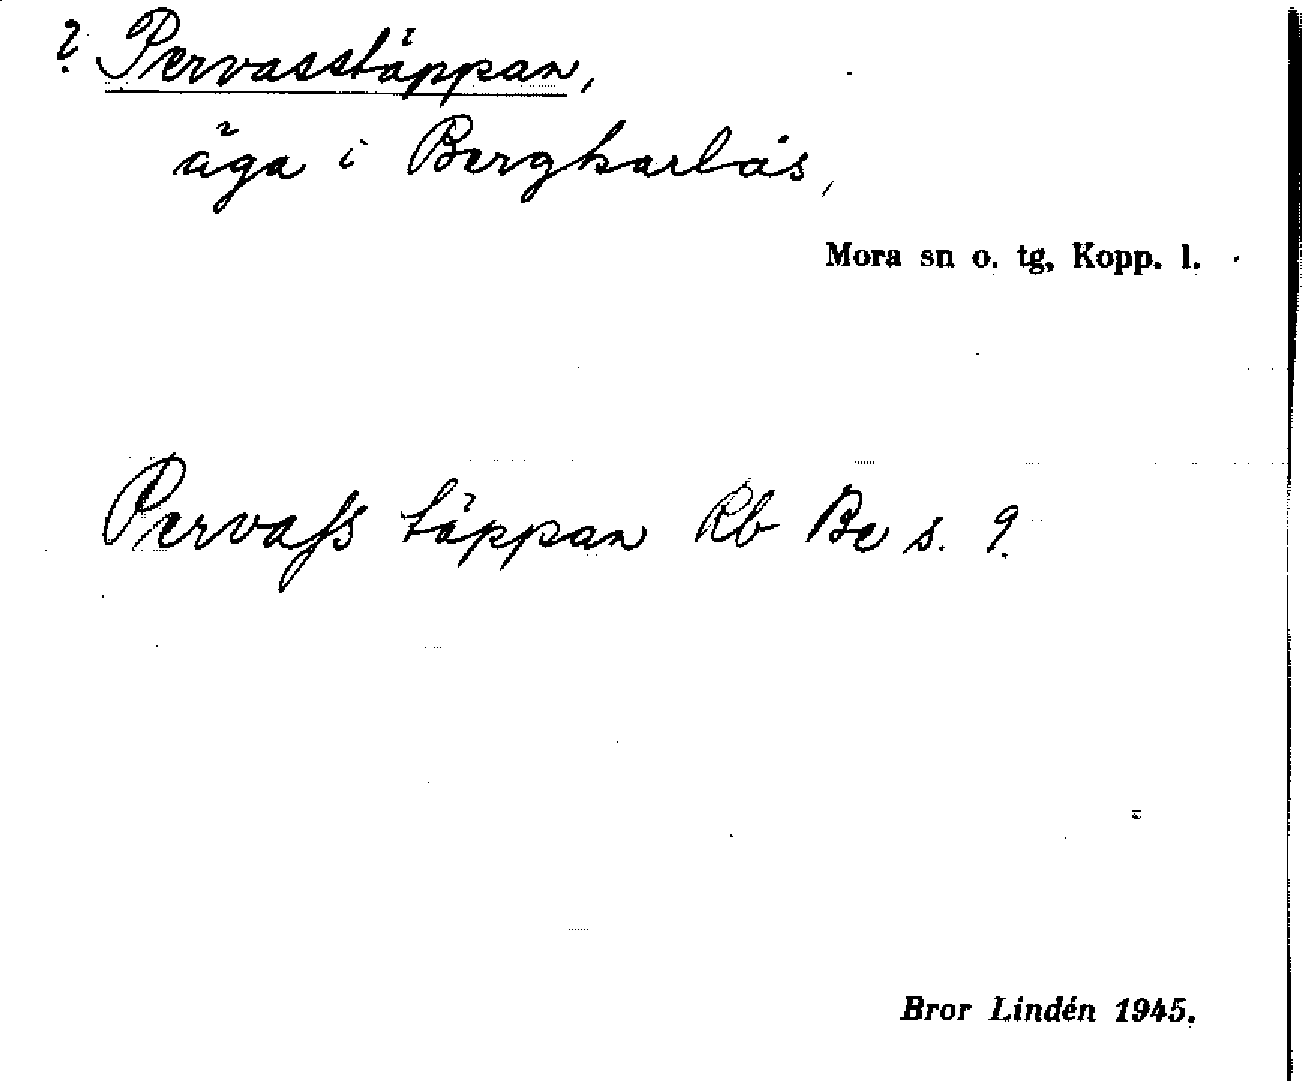 ? Pervasstäppan,
äga i Bergkarlås,
Mora sn o. tg, Kopp. l.
Pervaſs täppan Rb Be s. 9.
Bror Lindén 1945.